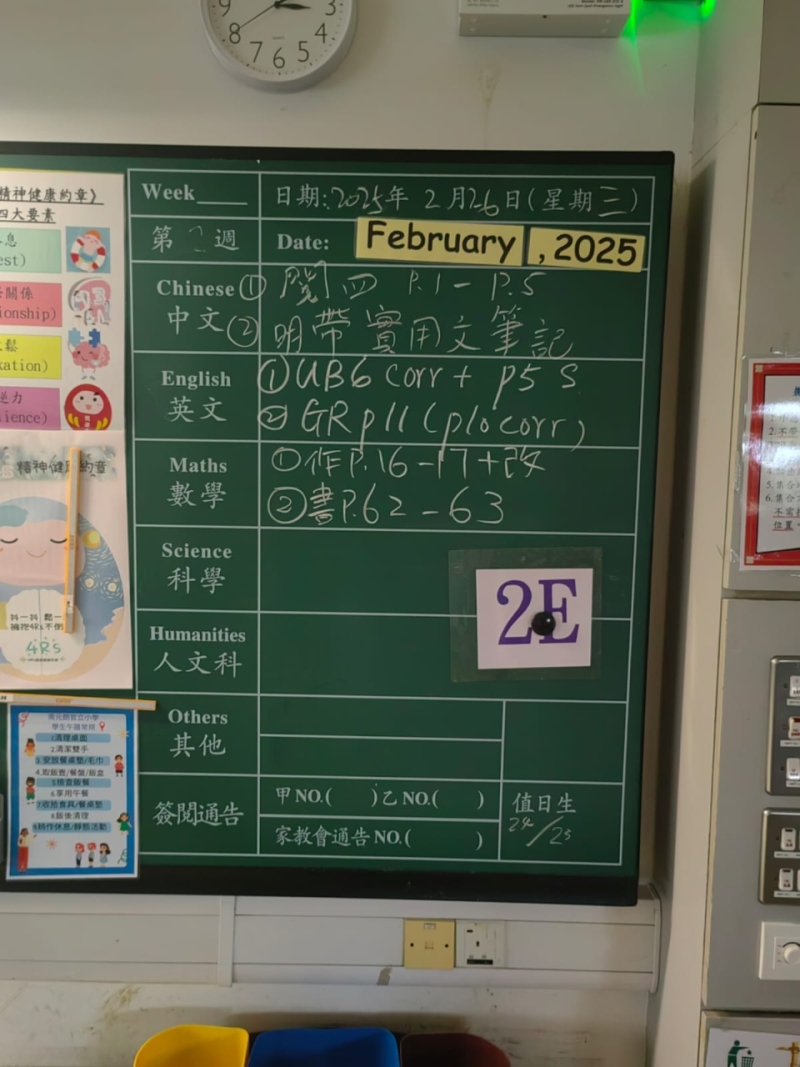 3
4
5
6
7
8
9
精神健康約章》
四大要素
息
est)
關係
ionship)
鬆
xation)
逆力
ience)
精神健康約章
4Rs
Week____ 日期:2025年 2月26日(星期三)
第 2 週 Date: February , 2025
Chinese ① 閱四 P.1 - P.5
中文 ② 明帶實用文筆記
English ① UB6 corr + p5 S
英文 ② GR p11 (p10 corr)
Maths ① 作P.16 -17+改
數學 ② 書P.62 - 63
Science
科學
2E
Humanities
人文科
Others
其他
簽閱通告 甲NO.( ) 乙NO.( ) 值日生
家教會通告 NO.( ) 24/25
學生午膳常規
1.清理桌面
2.清潔雙手
3.安放餐桌墊/毛巾
4.取飯壺/餐盤/飯盒
5.檢查飯餐
6.享用午餐
7.收拾食具/餐桌墊
8.飯後清理
9.稍作休息/靜態活動
2.不
5.集合
6.集合
不需
位置